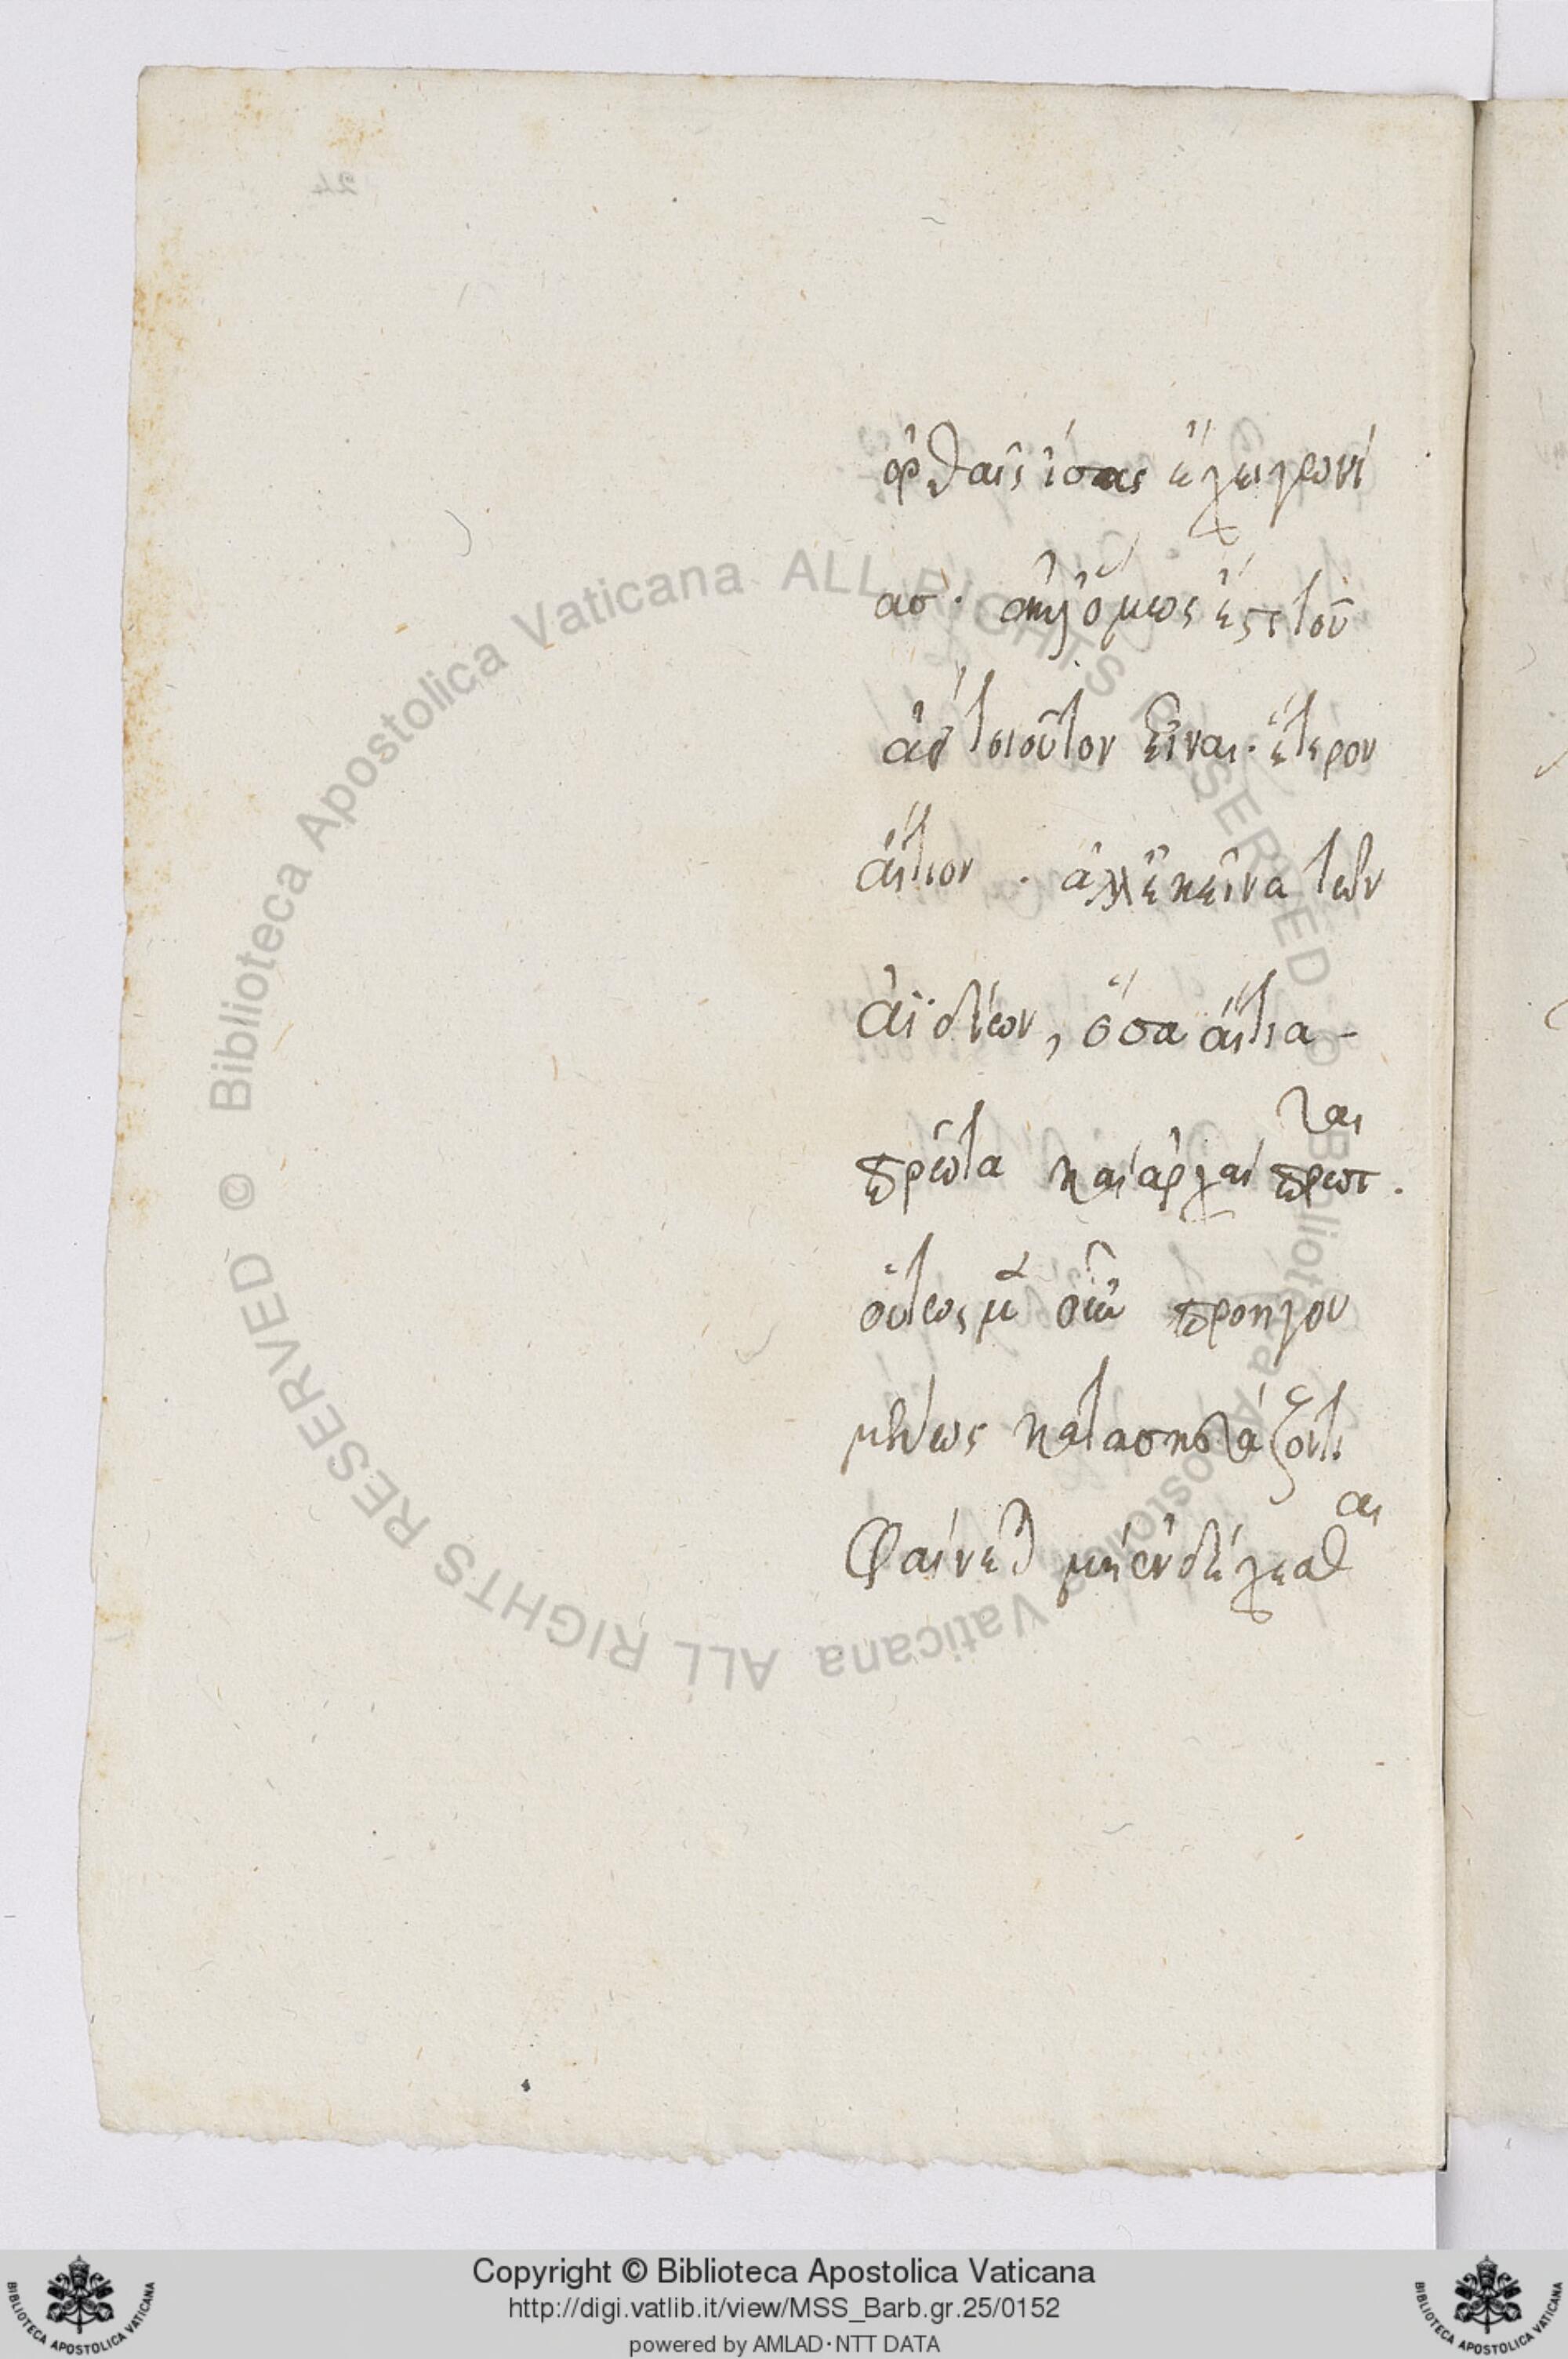 ὀρθαῖς ἴσας ἔχει γωνί
ας. ἀλλ' ὅμως ἔστι τοῦ
ἀεὶ τοιοῦτον εἶναι. ἕτερον
αἴτιον. ἀλλ' ἐκεῖνα τῶν
ἀϊδίων, ὅσα αἴτια -
πρῶτα καὶ ἀρχαὶ πρῶται.
οὕτως μὲν οὖν προηγου
μένως κατασκευάζοντι
φαίνεται μὴ ἐνδέχεσθαι
24
Copyright © Biblioteca Apostolica Vaticana
http://digi.vatlib.it/view/MSS_Barb.gr.25/0152
powered by AMLAD·NTT DATA
© Biblioteca Apostolica Vaticana ALL RIGHTS RESERVED
© Biblioteca Apostolica Vaticana ALL RIGHTS RESERVED
BIBLIOTECA APOSTOLICA VATICANA
BIBLIOTECA APOSTOLICA VATICANA